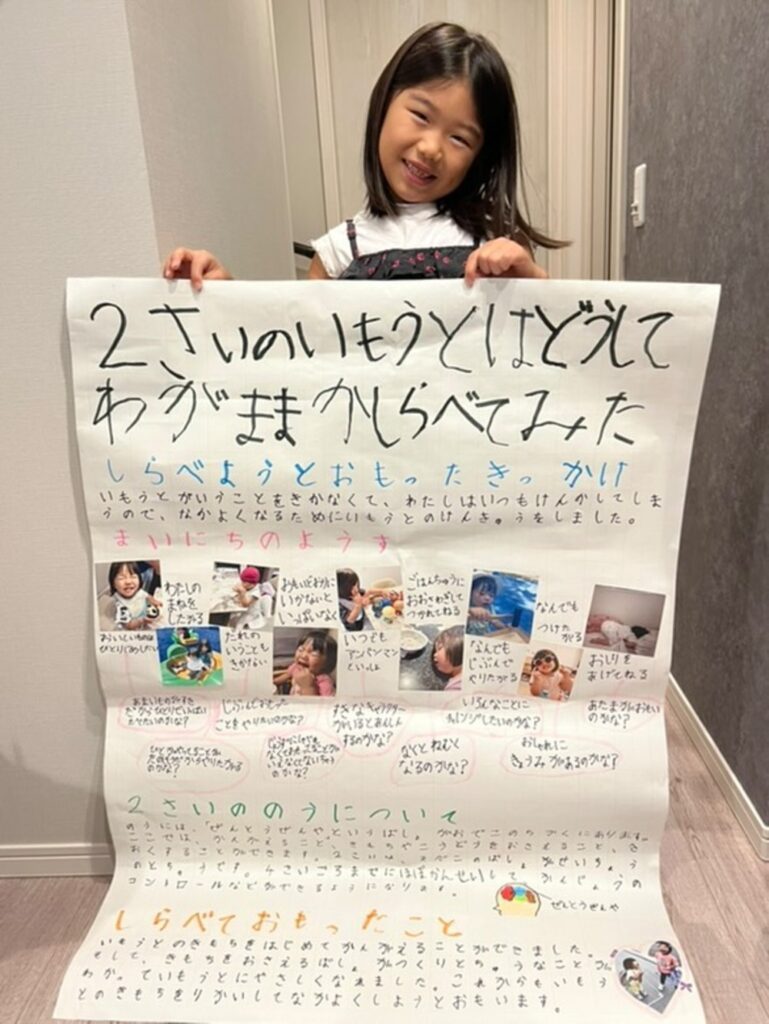 2さいのいもうとはどうして
わがままかしらべてみた
しらべようとおもったきっかけ
いもうとがいうことをきかなくて、わたしはいつもけんかしてしま
うので、なかよくなるためにいもうとのけんきゅうをしました。
まいにちのようす
わたしの
まねを
したがる
おもいどおりに
いかないと
いっぱいなく
ごはんちゅうに
おおさわぎして
つかれてねる
なんでも
つけた
がる
おいしいものは
ひとりじめしたい
だれの
いうことも
きかない
いつでも
アンパンマン
といっしょ
なんでも
じぶんで
やりたがる
おしりを
あげてねる
あまいものがすき
だからひとりでいっぱい
たべたいのかな?
じぶんでおもった
ことをやりたいのかな?
すきなキャラクター
がいるとあんしん
するのかな?
いろんなことに
チャレンジしたいのかな?
あたまがおもい
のかな?
のかな?
のかな?
なくとねむく
なるのかな?
おしゃれに
きょうみがあるのかな?
2さいののうについて
のうには、「ぜんとうぜんや」というばしょがおでこのちかくにあります。
ここでは、かんがえること、きもちやこうどうをおさえること、き
おくすることができます。2さいは、このばしょがせいちょう
のとちゅうです。4さいごろまでにほぼかんせいして、かんじょうの
コントロールなどができるようになります。
ぜんとうぜんや
しらべておもったこと
いもうとのきもちをはじめてかんがえることができました。
そして、きもちをおさえるばしょがつくりとちゅうなことが
わかっていもうとにやさしくなれました。これからもいもう
とのきもちをりかいしてなかよくしようとおもいます。